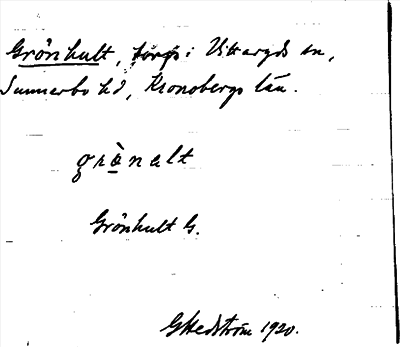 Grönhult, torp i Vittaryds sn,
Sunnerbo hd, Kronobergs län.
grònalt
Grönhult G.
GHedström 1920.